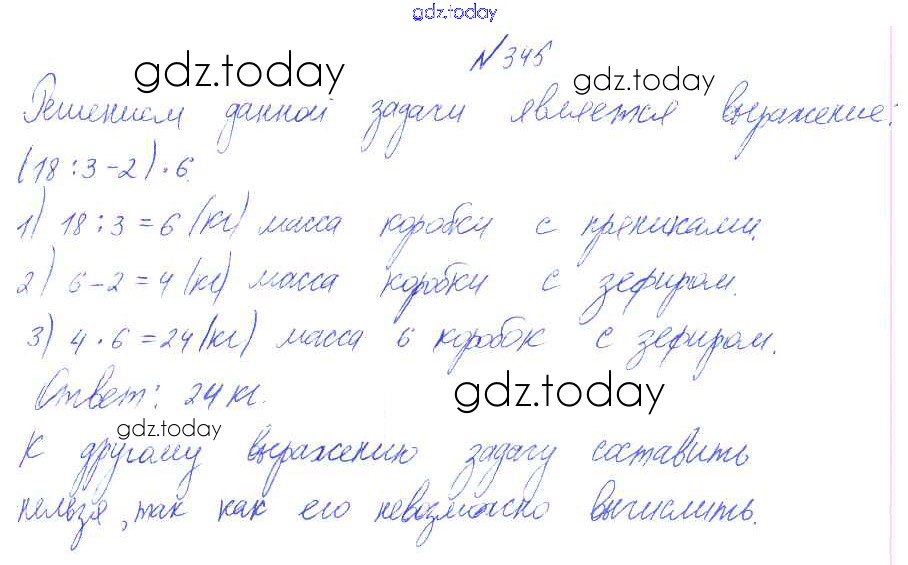 gdz.today
№345
gdz.today
gdz.today
Решением данной задачи является выражение:
(18:3-2)·6.
1) 18:3=6 (кг) масса коробки с пряниками.
2) 6-2=4 (кг) масса коробки с зефиром.
3) 4·6=24 (кг) масса 6 коробок с зефиром.
Ответ: 24 кг.
gdz.today
gdz.today
К другому выражению задачу составить
нельзя, так как его невозможно вычислить.